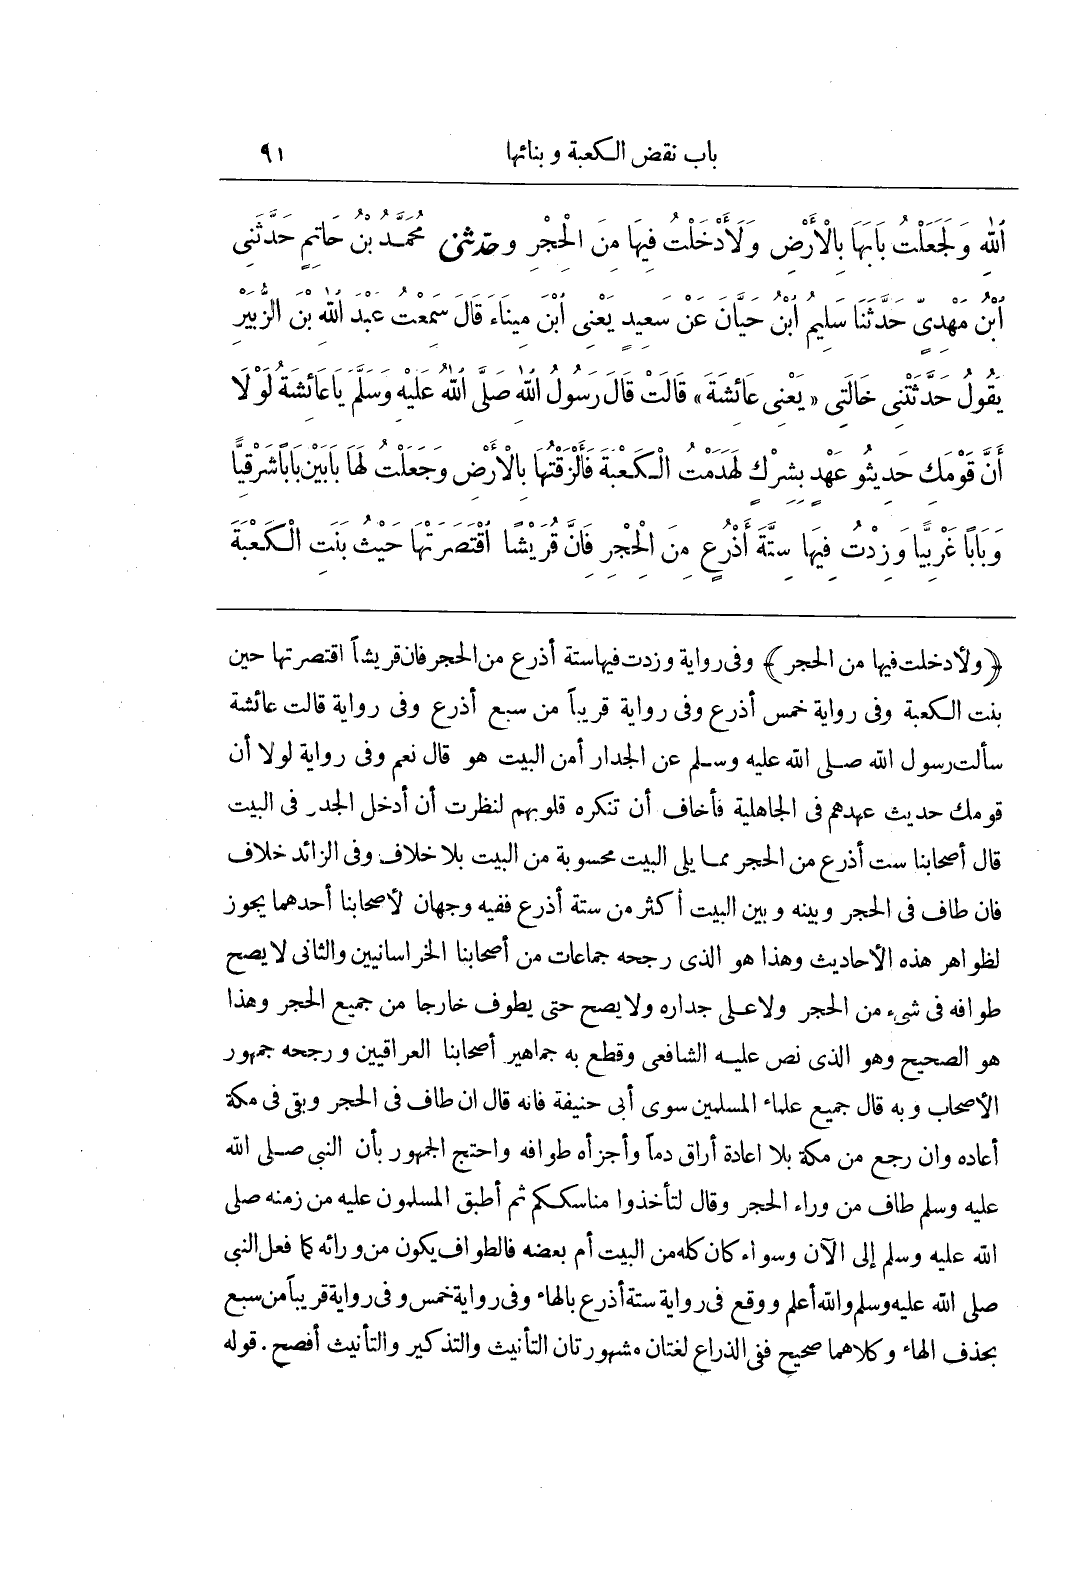 باب نقض الكعبة وبنائها ٩١
اللهِ وَلَجَعَلْتُ بَابَهَا بِالْأَرْضِ وَلَأَدْخَلْتُ فِيهَا مِنَ الْحِجْرِ وحدثنى مُحَمَّدُ بْنُ حَاتِمٍ حَدَّثَنِى
ابْنُ مَهْدِىٍّ حَدَّثَنَا سَلِيمُ ابْنُ حَيَّانَ عَنْ سَعِيدٍ يَعْنِى ابْنَ مِينَاءَ قَالَ سَمِعْتُ عَبْدَ اللهِ بْنَ الزُّبَيْرِ
يَقُولُ حَدَّثَتْنِى خَالَتِى «يَعْنِى عَائِشَةَ» قَالَتْ قَالَ رَسُولُ اللهِ صَلَّى اللهُ عَلَيْهِ وَسَلَّمَ يَاعَائِشَةُ لَوْلَا
أَنَّ قَوْمَكِ حَدِيثُو عَهْدٍ بِشِرْكٍ لَهَدَمْتُ الْكَعْبَةَ فَأَلْزَقْتُهَا بِالْأَرْضِ وَجَعَلْتُ لَهَا بَابَيْنِ بَابًا شَرْقِيًّا
وَبَابًا غَرْبِيًّا وَزِدْتُ فِيهَا سِتَّةَ أَذْرُعٍ مِنَ الْحِجْرِ فَانَّ قُرَيْشًا اقْتَصَرَتْهَا حَيْثُ بَنَتِ الْكَعْبَةَ
﴿ولأدخلت فيها من الحجر﴾ وفى رواية وزدت فيها ستة أذرع من الحجر فان قريشاً اقتصرتها حين
بنت الكعبة وفى رواية خمس أذرع وفى رواية قريباً من سبع أذرع وفى رواية قالت عائشة
سألت رسول الله صلى الله عليه وسلم عن الجدار أمن البيت هو قال نعم وفى رواية لولا أن
قومك حديث عهدهم فى الجاهلية فأخاف أن تنكره قلوبهم لنظرت أن أدخل الجدر فى البيت
قال أصحابنا ست أذرع من الحجر مما يلى البيت محسوبة من البيت بلا خلاف وفى الزائد خلاف
فان طاف فى الحجر وبينه وبين البيت أكثر من ستة أذرع ففيه وجهان لأصحابنا أحدهما يجوز
لظواهر هذه الأحاديث وهذا هو الذى رجحه جماعات من أصحابنا الخراسانيين والثانى لا يصح
طوافه فى شىء من الحجر ولا على جداره ولا يصح حتى يطوف خارجا من جميع الحجر وهذا
هو الصحيح وهو الذى نص عليه الشافعى وقطع به جماهير أصحابنا العراقيين ورجحه جمهور
الأصحاب وبه قال جميع علماء المسلمين سوى أبى حنيفة فانه قال ان طاف فى الحجر وبقى فى مكة
أعاده وان رجع من مكة بلا اعادة أراق دماً وأجزأه طوافه واحتج الجمهور بأن النبى صلى الله
عليه وسلم طاف من وراء الحجر وقال لتأخذوا مناسككم ثم أطبق المسلمون عليه من زمنه صلى
الله عليه وسلم إلى الآن وسواء كان كله من البيت أم بعضه فالطواف يكون من ورائه كما فعل النبى
صلى الله عليه وسلم والله أعلم ووقع فى رواية ستة أذرع بالهاء وفى رواية خمس وفى رواية قريباً من سبع
بحذف الهاء وكلاهما صحيح ففى الذراع لغتان مشهورتان التأنيث والتذكير والتأنيث أفصح . قوله